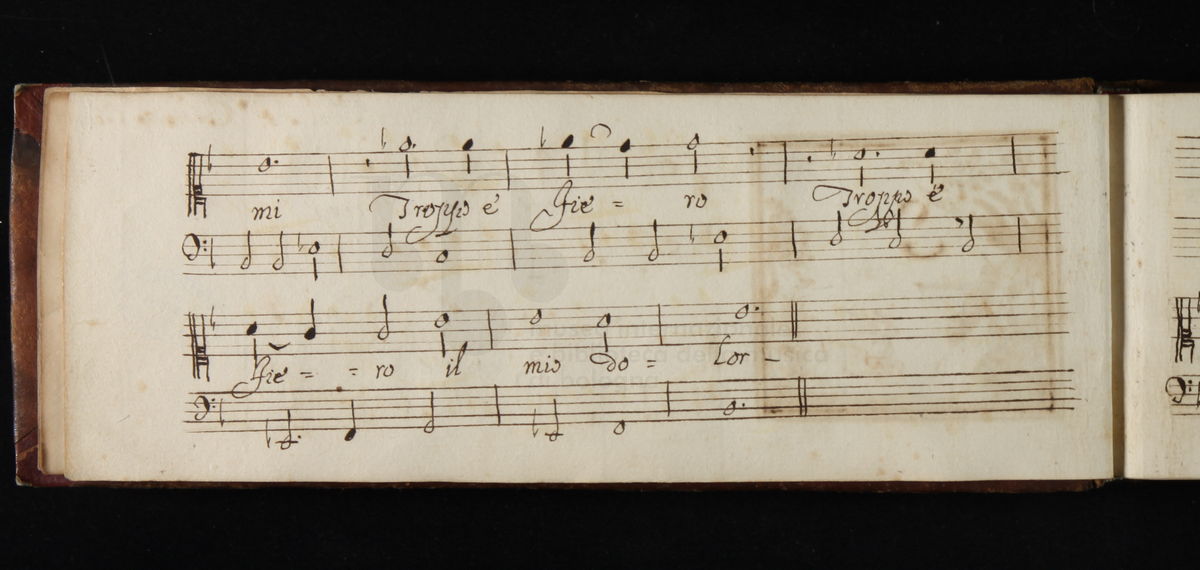 mi Troppo é fie = ro Troppo é
fie = = ro il mio do = lor